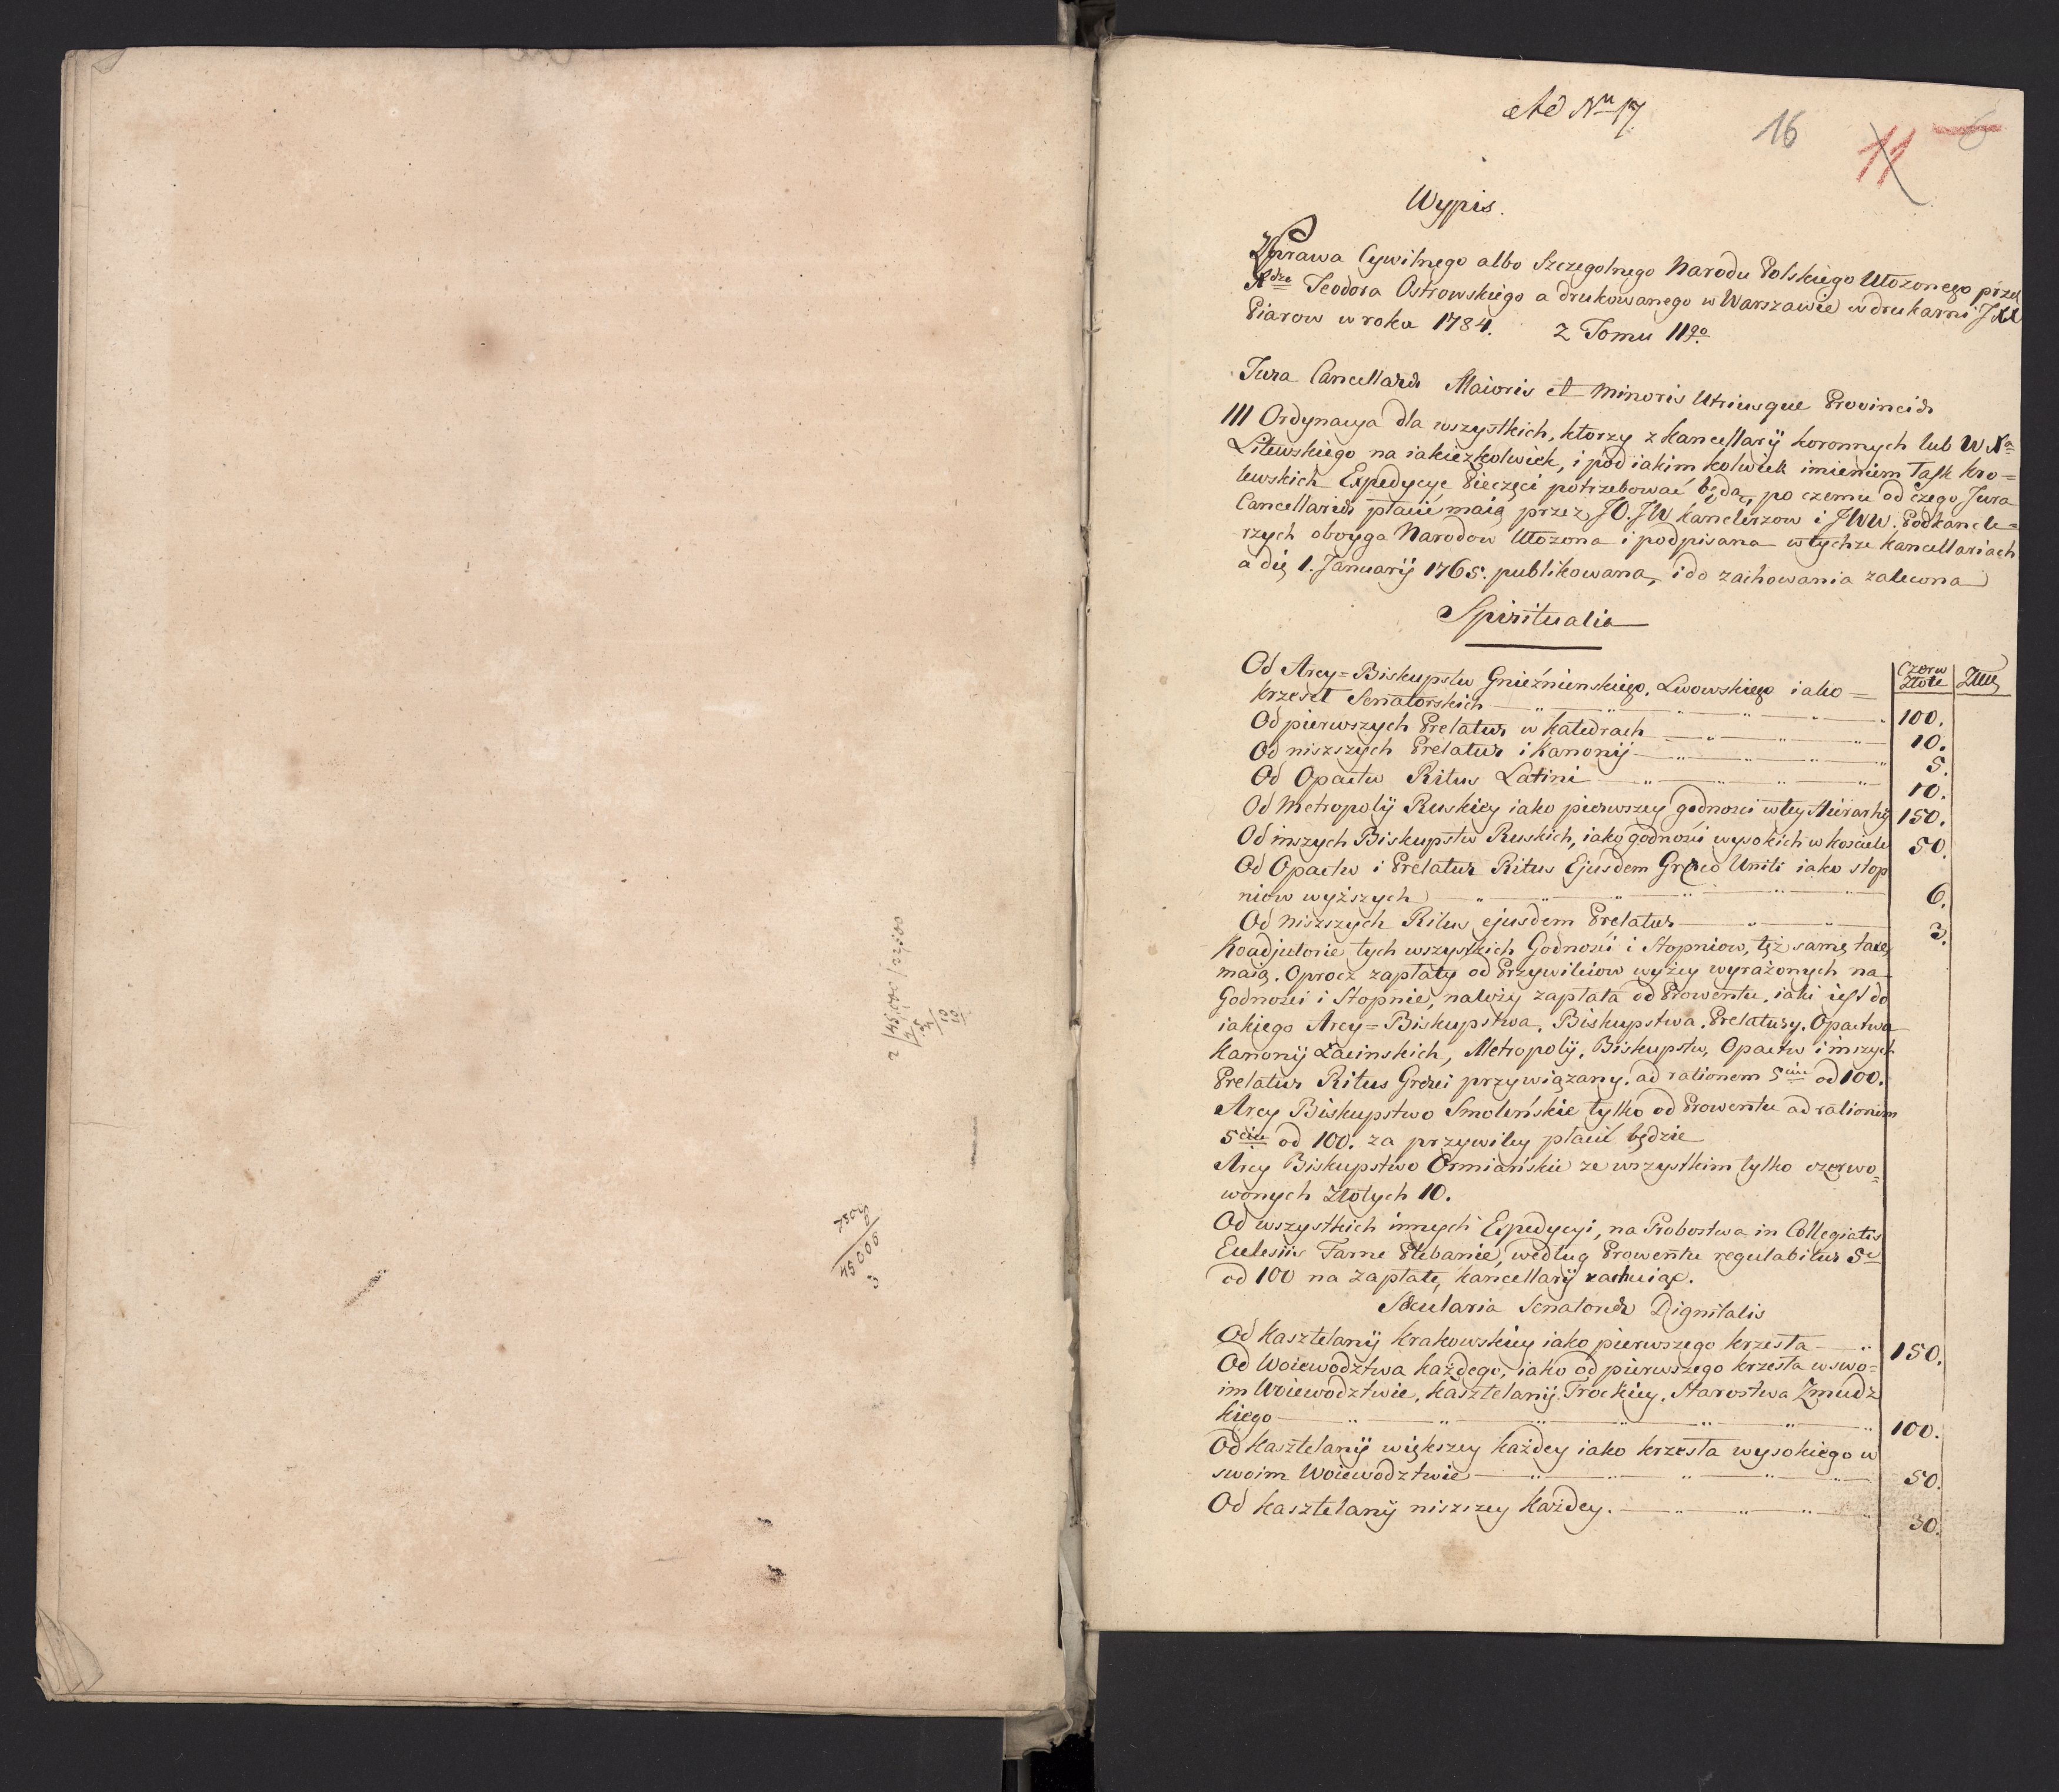 2/45,000/22,500
4
5
4
10
10
7500
6
45000
3
Ad Nu 17
16
11
6
Wypis.
Z Prawa Cywilnego albo Szczegolnego Narodu Polskiego Ułożonego przez
Xdza Teodora Ostrowskiego a drukowanego w Warszawie w drukarni JXX
Piarow w roku 1784. Z Tomu IIgo
Jura Cancellariæ Maioris et Minoris Utriusque Provinciæ
III Ordynacya dla wszystkich, ktorzy z kancellarÿ koronnych lub W Xa
Litewskiego na iakieżkolwiek, i pod iakim kolwiek imieniem łask kro=
lewskich Expedycye Pieczęci potrzebować będą, po czemu od czego Jura
Cancellariæ płacić maią przez JO. JW kanclerzow i JWW. Podkancle=
rzych oboyga Narodow Ułożona i podpisana w tychże kancellariach
a die 1. Januarÿ 1765. publikowana, i do zachowania zalecona
Spiritualia
Czerw Złote | Złłł
Od Arcy=Biskupstw Gnieźnienskiego, Lwowskiego iako=
krzeseł Senatorskich 100.
Od pierwszych Prelatur w katedrach 10.
Od niszszych Prelatur i Kanonÿ 5.
Od Opactw Ritus Latini 10.
Od Metropolÿ Ruskiey iako pierwszey godnosci w tey Hierarhÿ 150.
Od inszych Biskupstw Ruskich, iako godności wysokich w kosciele 50.
Od Opactw i Prelatur Ritus Ejusdem Græco Uniti iako stop
niow wyższych 6.
Od Niszszych Ritus ejusdem Prelatur 3.
Koadjutorie tych wszystkich Godności i Stopniow, też samę taxę
maią. Oprocz zapłaty od Przywileiow wyżey wyrażonych na
Godności i Stopnie, należy zapłata od Prowentu, iaki iest do
iakiego Arcy=Biskupstwa, Biskupstwa, Prelatury, Opactwa
Kanonÿ Łacinskich, Metropolÿ, Biskupstw, Opactw i inszych
Prelatur Ritus Græci przywiązany, ad rationem 5ciu od 100.
Arcy Biskupstwo Smoleńskie tylko od Prowentu ad rationem
5ciu od 100. za przywiley płacić będzie
Arcy Biskupstwo Ormiańskie ze wszystkim tylko czerwo=
wonych Złotych 10.
Od wszystkich innych Expedycyi, na Probostwa in Collegiatis
Eclesiis Farne Plebanie, według Prowentu regulabitur 5c
od 100 na zapłatę kancellarÿ rachuiąc.
Sæcularia Senatoriæ Dignitatis
Od Kasztelanÿ Krakowskiey iako pierwszego krzesła 150.
Od Woiewodztwa każdego, iako od pierwszego krzesła w swo=
im Woiewodztwie, kasztelanÿ Trockiey, Starostwa Zmudz
kiego 100.
Od Kasztelanÿ większey każdey iako krzesła wysokiego w
swoim Woiewodztwie 50.
Od Kasztelanÿ niszszey każdey. 30.